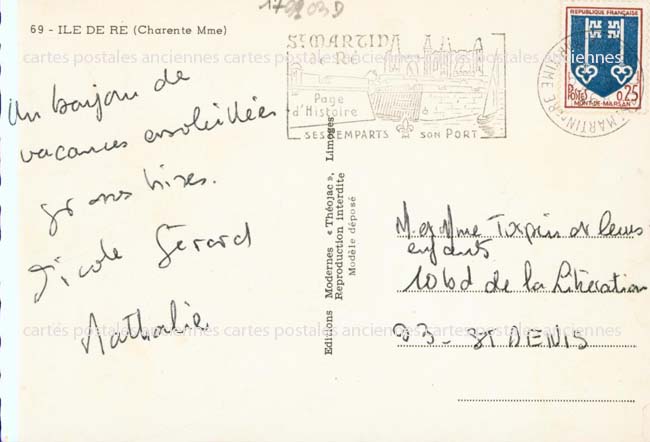 17092030
69 - ILE DE RE (Charente Mme)
Un bonjour de
vacances ensoleillées
gros bises.
Nicole Gérard
Nathalie
ST MARTIN
de RÉ
Page
d'Histoire
SES REMPARTS SON PORT
REPUBLIQUE FRANÇAISE
POSTES
0,25
MONT-DE-MARSAN
ST MARTIN DE RE
Editions Modernes « Théojac », Limoges
Reproduction interdite
Modèle déposé
M. et Mme Turpin et leurs
enfants
10 bd de la Libération
93 - St DENIS
cartes postales anciennes cartes postales anciennes cartes postales anciennes
cartes postales anciennes cartes postales anciennes cartes postales anciennes